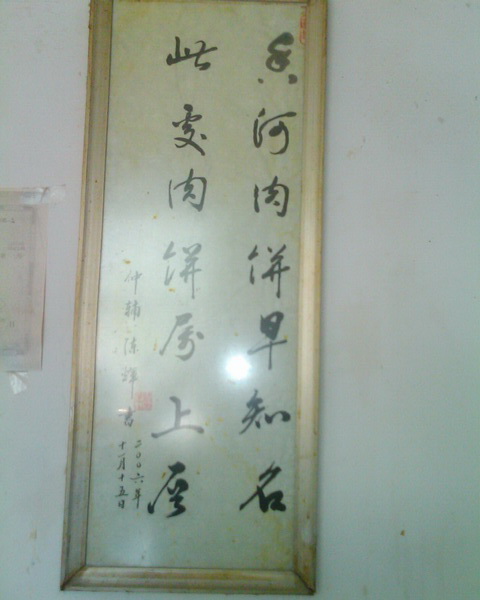 香河肉饼早知名
此处肉饼属上
仲辅陈辉书
二〇〇六年
十一月十五日